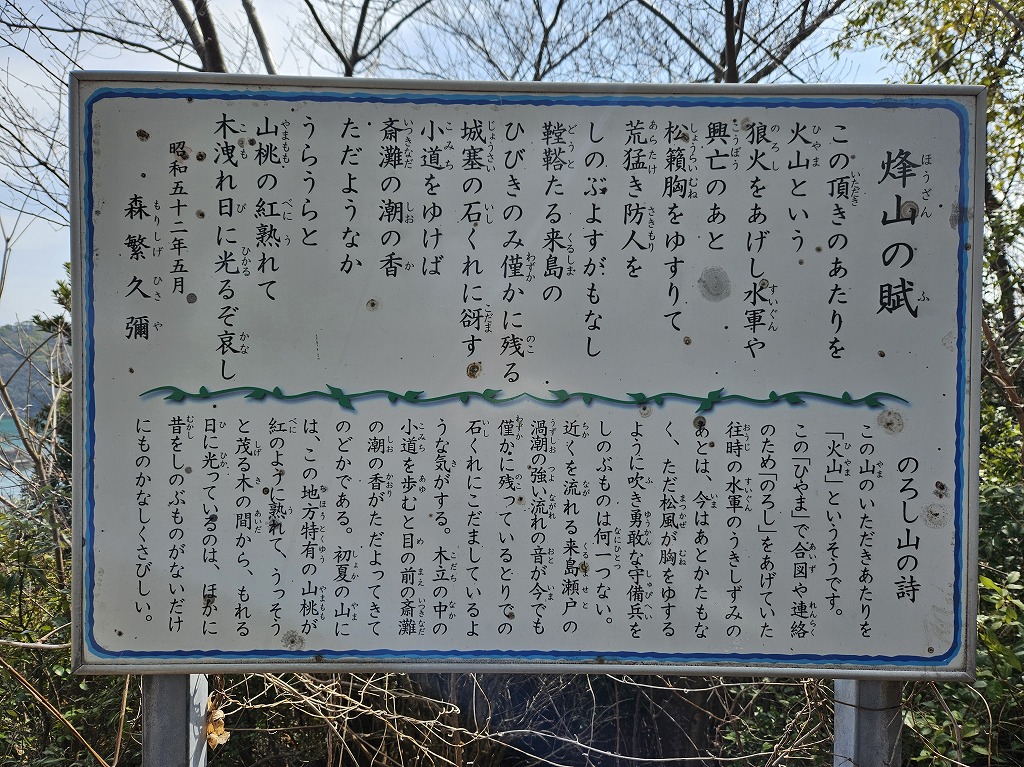 烽山の賦
この頂きのあたりを
火山という
狼火をあげし水軍や
興亡のあと
松籟胸をゆすりて
荒猛き防人を
しのぶよすがもなし
鞺鞳たる来島の
ひびきのみ僅かに残る
城塞の石くれに谺す
小道をゆけば
斎灘の潮の香
ただようなか
うらうらと
山桃の紅熟れて
木洩れ日に光るぞ哀し
昭和五十二年五月
森繁久彌
のろし山の詩
この山のいただきあたりを
「火山」というそうです。
この「ひやま」で合図や連絡
のため「のろし」をあげていた
往時の水軍のうきしずみの
あとは、今はあとかたもな
く、ただ松風が胸をゆする
ように吹き勇敢な守備兵を
しのぶものは何一つない。
近くを流れる来島瀬戸の
渦潮の強い流れの音が今でも
僅かに残っているとりでの
石くれにこだましているよ
うな気がする。木立の中の
小道を歩むと目の前の斎灘
の潮の香がただよってきて
のどかである。初夏の山に
は、この地方特有の山桃が
紅のように熟れて、うっそう
と茂る木の間から、もれる
日に光っているのは、ほかに
昔をしのぶものがないだけ
にものかなしくさびしい。